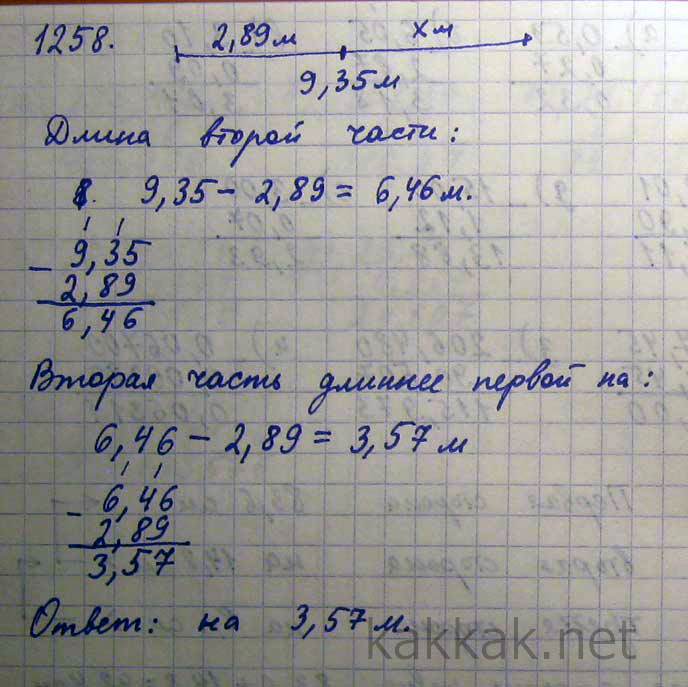 1258. 2,89м xм
9,35м
Длина второй части:
9,35 - 2,89 = 6,46м.
- 9,35
2,89
6,46
Вторая часть длиннее первой на:
6,46 - 2,89 = 3,57м
- 6,46
2,89
3,57
Ответ: на 3,57м.
kakkak.net